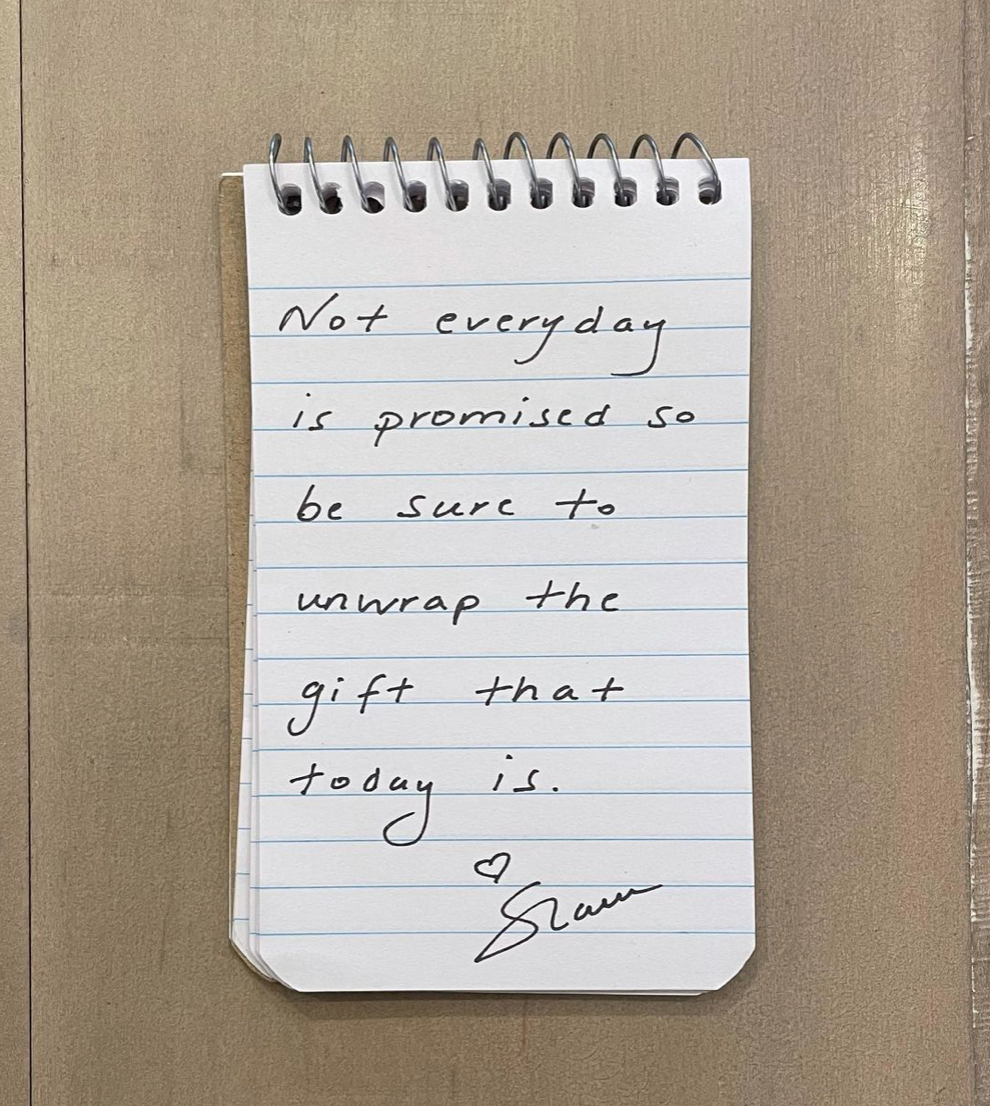 Not everyday
is promised so
be sure to
unwrap the
gift that
today is.